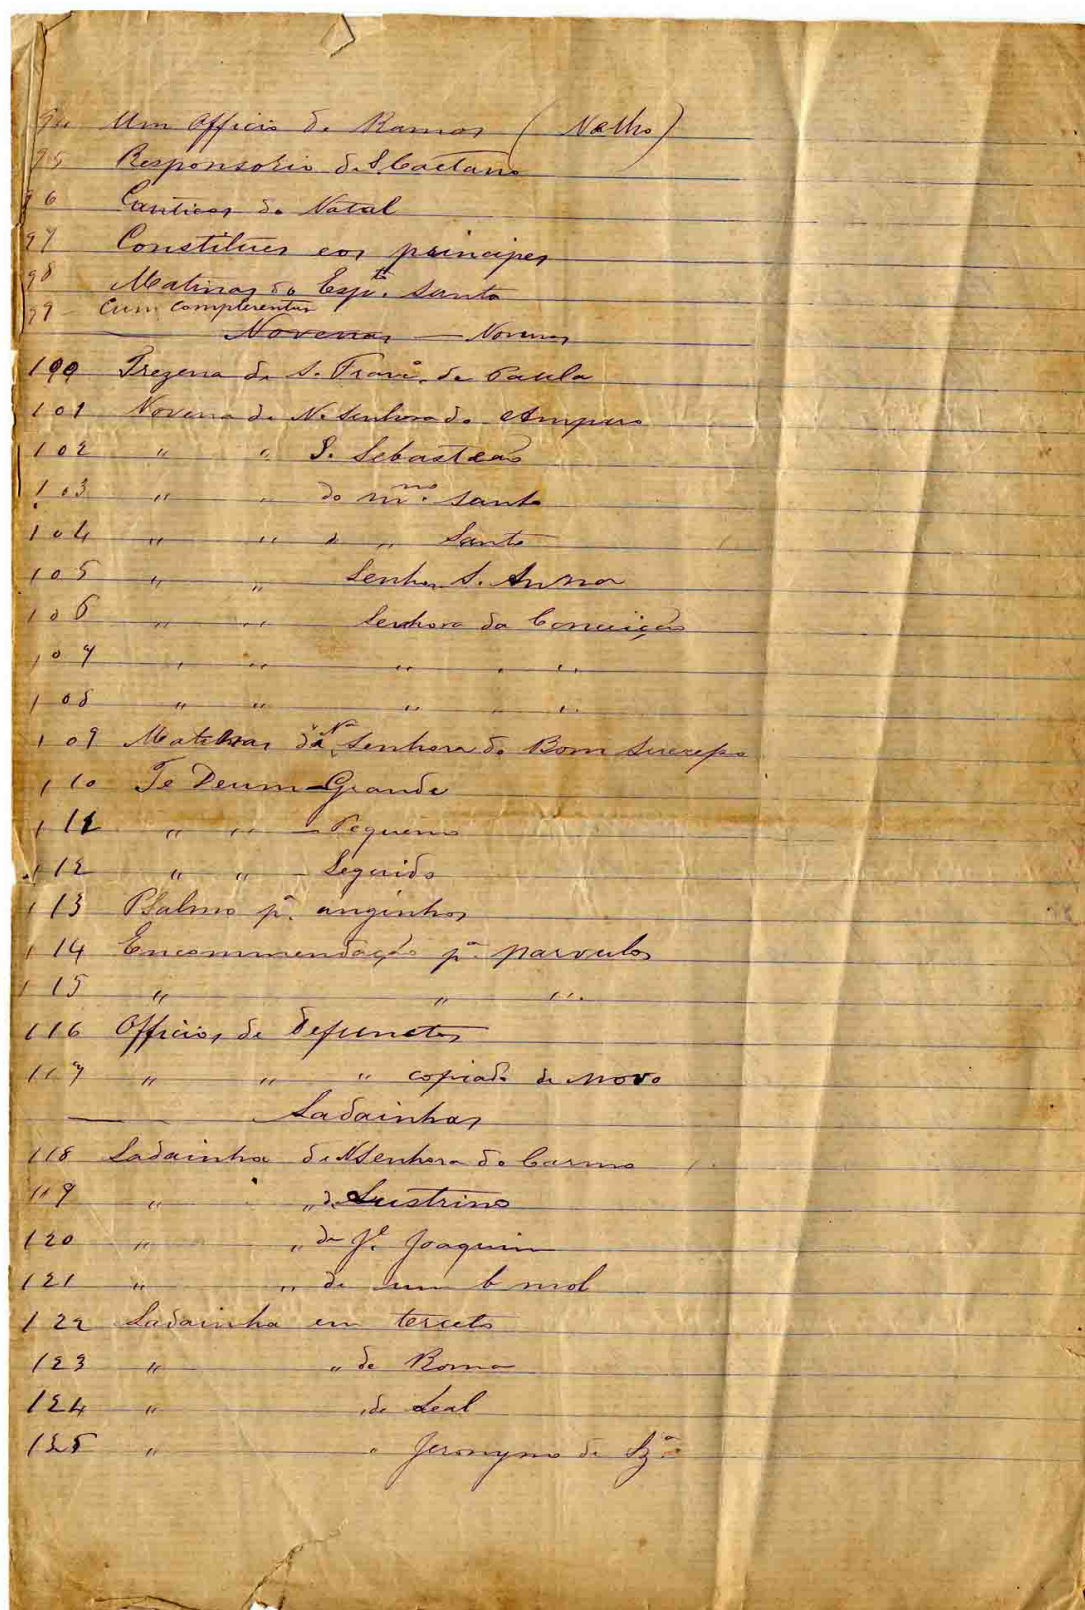 94 Um Officio de Ramos (Velho)
95 Responsorio de S. Caetano
96 Canticos do Natal
97 Constitues eos principes
98 Matinas do Esp.to Santo
99 Cum complerentur
Novenas — Novenas
100 Trezena de S. Franc.o de Paula
101 Novena de N. Senhora do Amparo
102 " " S. Sebastião
103 " " do m.mo Santo
104 " " d " Santo
105 " " Senhora S. Anna
106 " " Senhora da Conceição
107 " " " " "
108 " " " " "
109 Matinas da Na Senhora do Bom Sucesso
110 Te Deum – Grande
111 " " – Pequeno
112 " " – Seguido
113 Psalmo p.a anginhos
114 Encommendação p.a parvulos
115 " " "
116 Officios de Defunctos
117 " " " copiado de novo
Ladainhas
118 Ladainha de N Senhora do Carmo
119 " " de Lustrino
120 " " de J.e Joaquim
121 " " de um b mol
122 Ladainha em terceto
123 " " de Roma
124 " " de Leal
125 " " Jeronymo de Sz.a